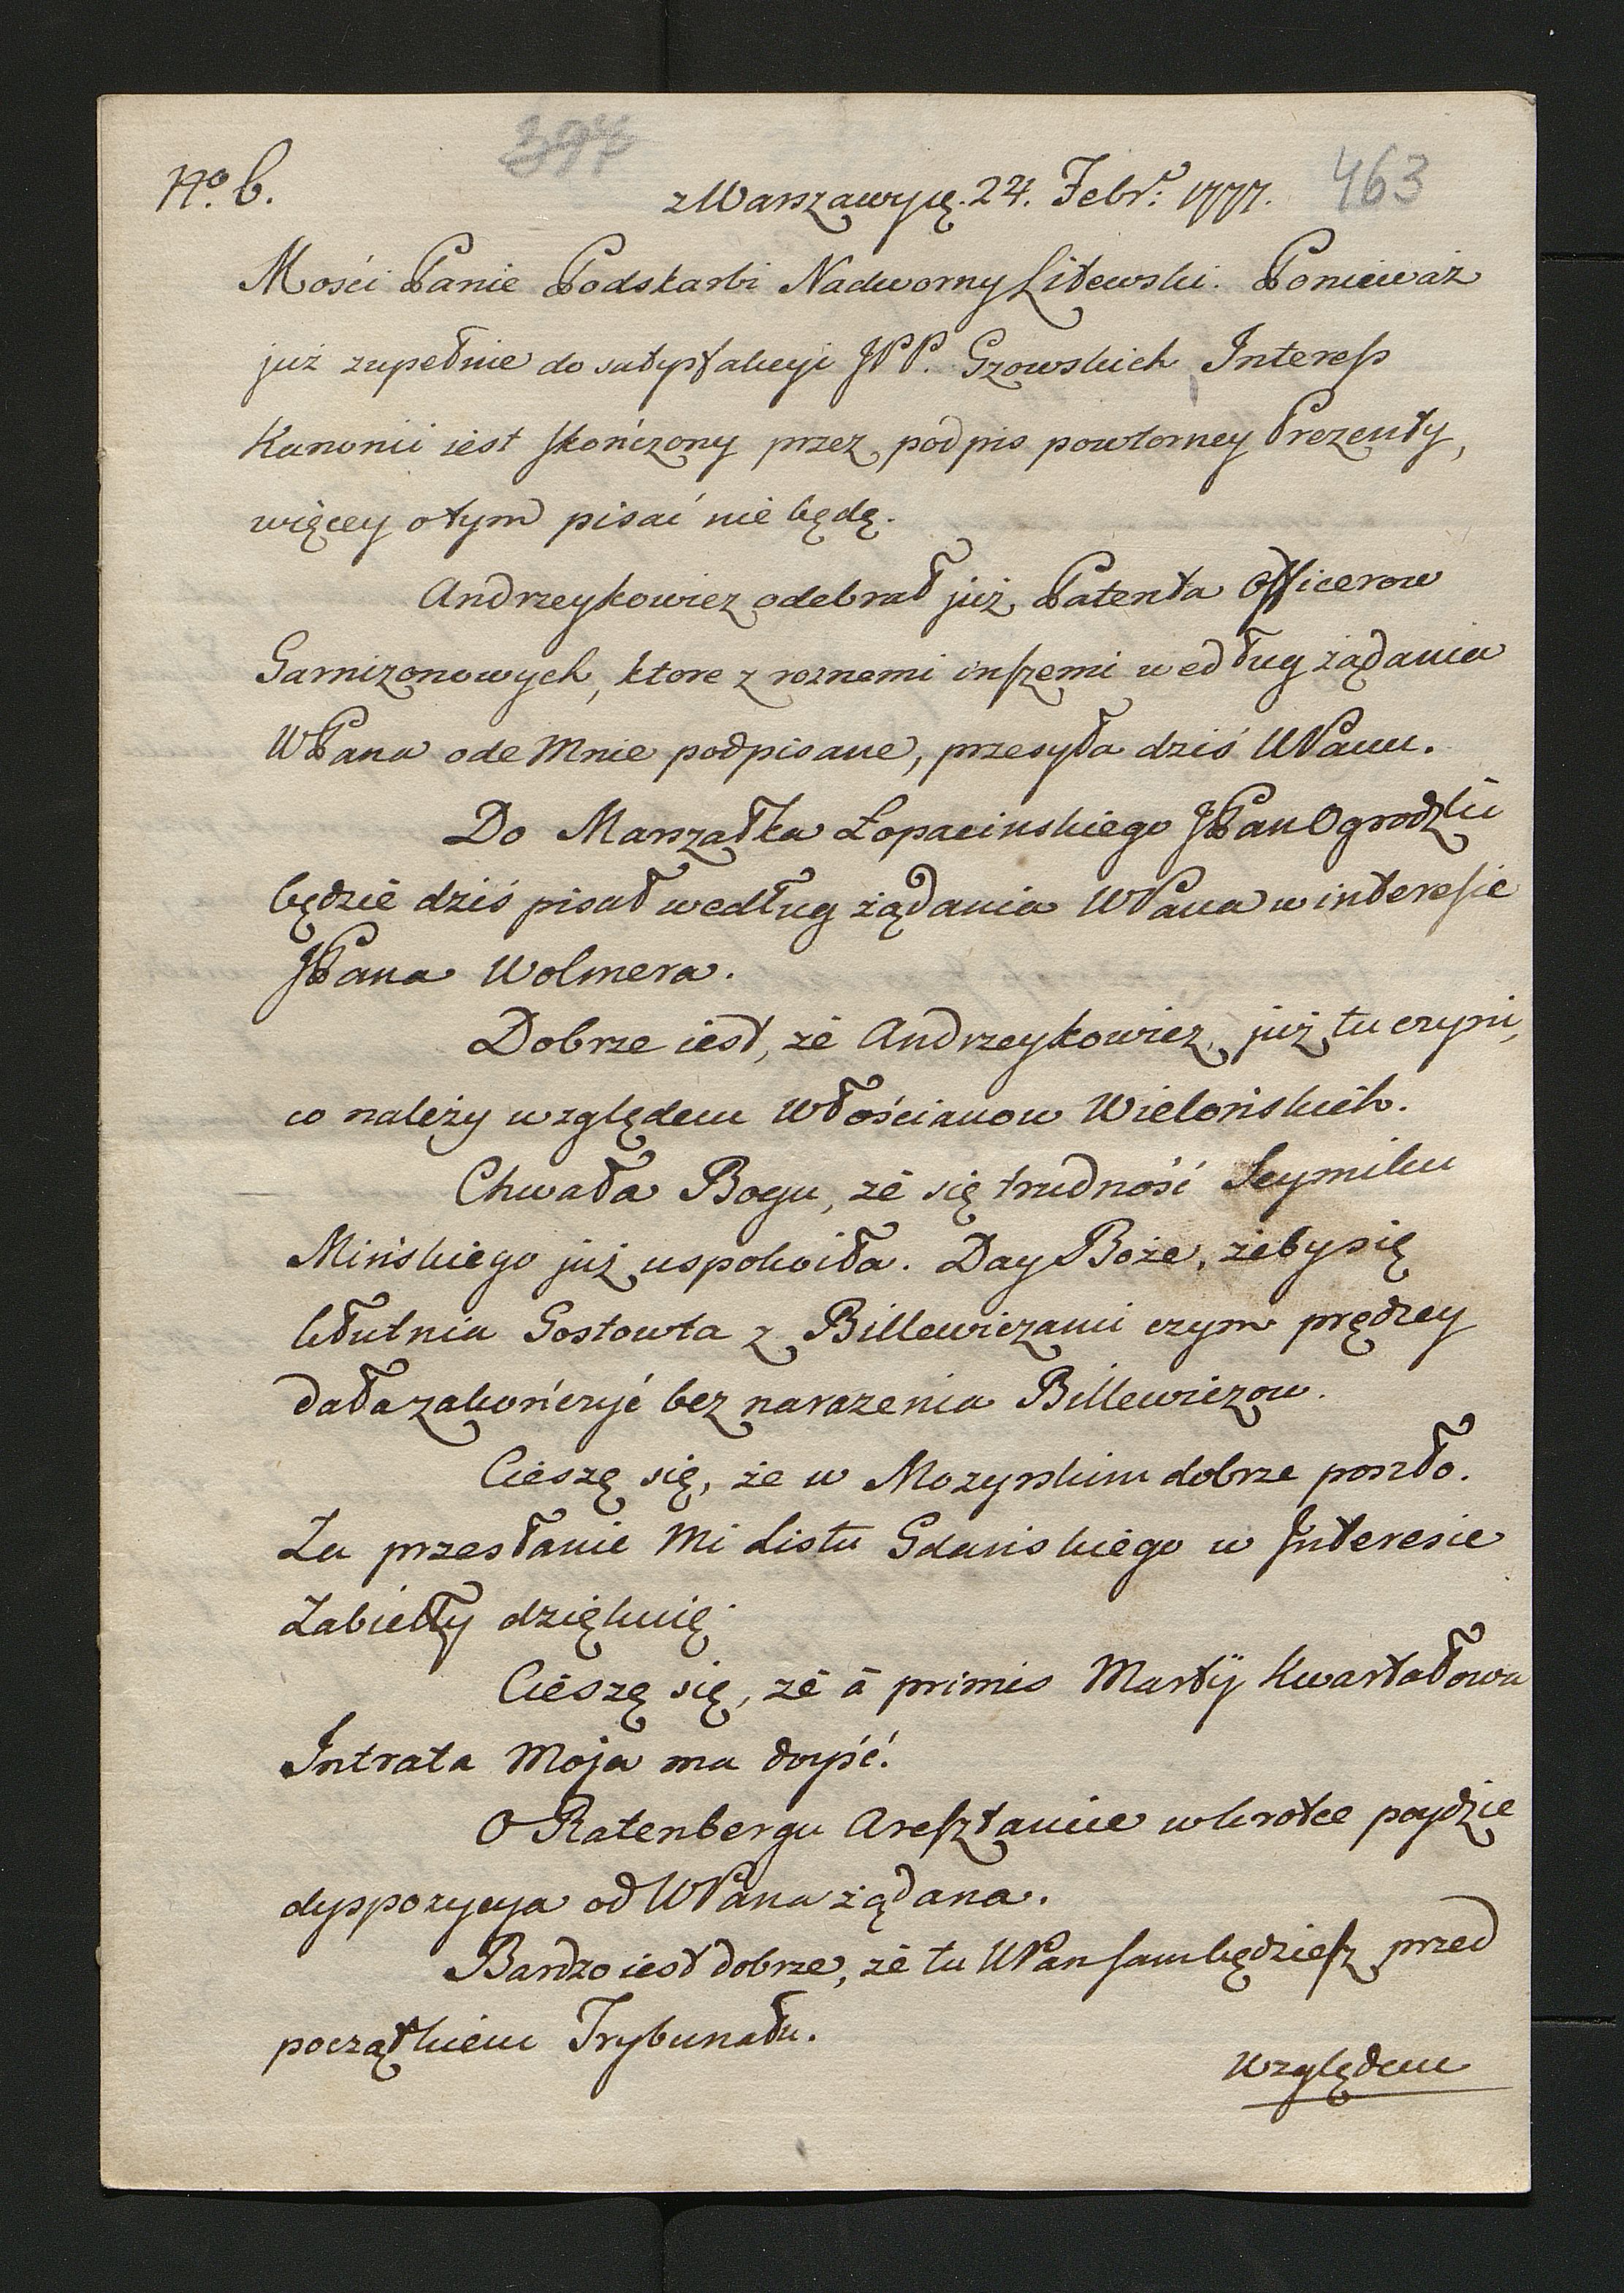 No. 6.
397
463
z Warszawy ię. 24. Febr: 1777.
Mości Panie Podskarbi Nadworny Litewski. Ponieważ
już zupełnie do satysfakcyi JPP. Gzowskich Interess
Kanonii iest skończony przez podpis powtorney Prezenty,
więcey o tym pisać nie będę.
Andrzeykowicz odebrał już Patenta Officerow
Garnizonowych, ktore z roznemi inszemi według żądania
WPana ode Mnie podpisane, przesyła dziś WPanu.
Do Marszałka Łopacinskiego JPan Ogrodzki
będzie dziś pisał według żądania WPana w interesie
JPana Wolmera.
Dobrze iest, że Andrzeykowicz już tu czyni,
co należy względem Włościanow Wielońskich.
Chwała Bogu, że się trudność Seymiku
Mińskiego już uspokoiła. Day Boże, żeby się
kłutnia Gostowta z Billewiczami czym prędzey
dała zakończyć bez narazenia Billewiczow.
Cieszę się, że w Mozyrskim dobrze poszło.
Za przesłanie Mi Listu Gdańskiego w Interesie
Zabiełły dziękuię.
Cieszę się, że à primis Martÿ Kwartałowa
Intrata Moja ma doyść.
O Ratenbergu Aresztancie wkrotce poydzie
dyspozycya od WPana żądana.
Bardzo iest dobrze, że tu WPan sam będziesz przed
początkiem Trybunału.
Względem